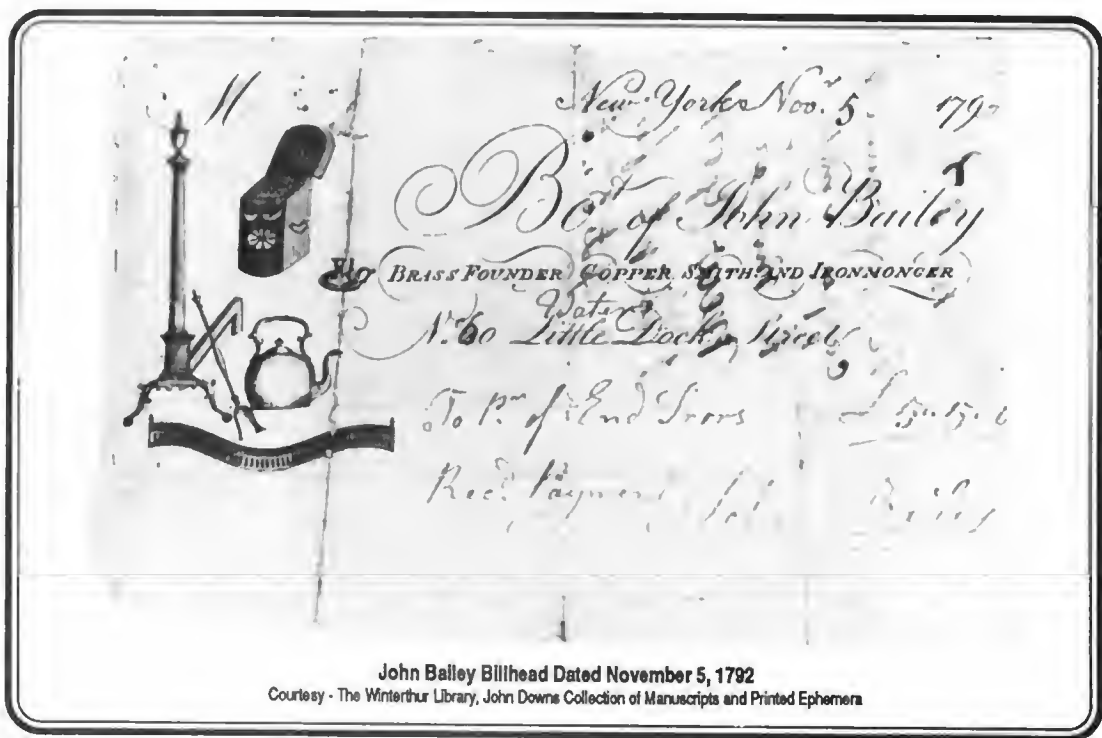 New York Nov.r 5 179
Bo.t of John Bailey
BRASS FOUNDER COPPER SMITH AND IRONMONGER
Water
N.o 60 Little Dock Street
To P.r of End Irons £
Rec.d Payment Bailey
John Bailey Billhead Dated November 5, 1792
Courtesy - The Winterthur Library, John Downs Collection of Manuscripts and Printed Ephemera